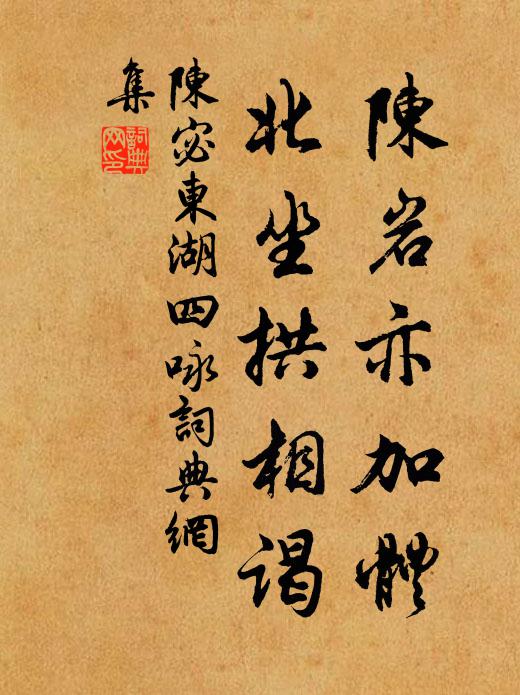 陳岩亦加體
北坐拱相謁
陳宓東湖四咏詞典網
集
詞典
网印